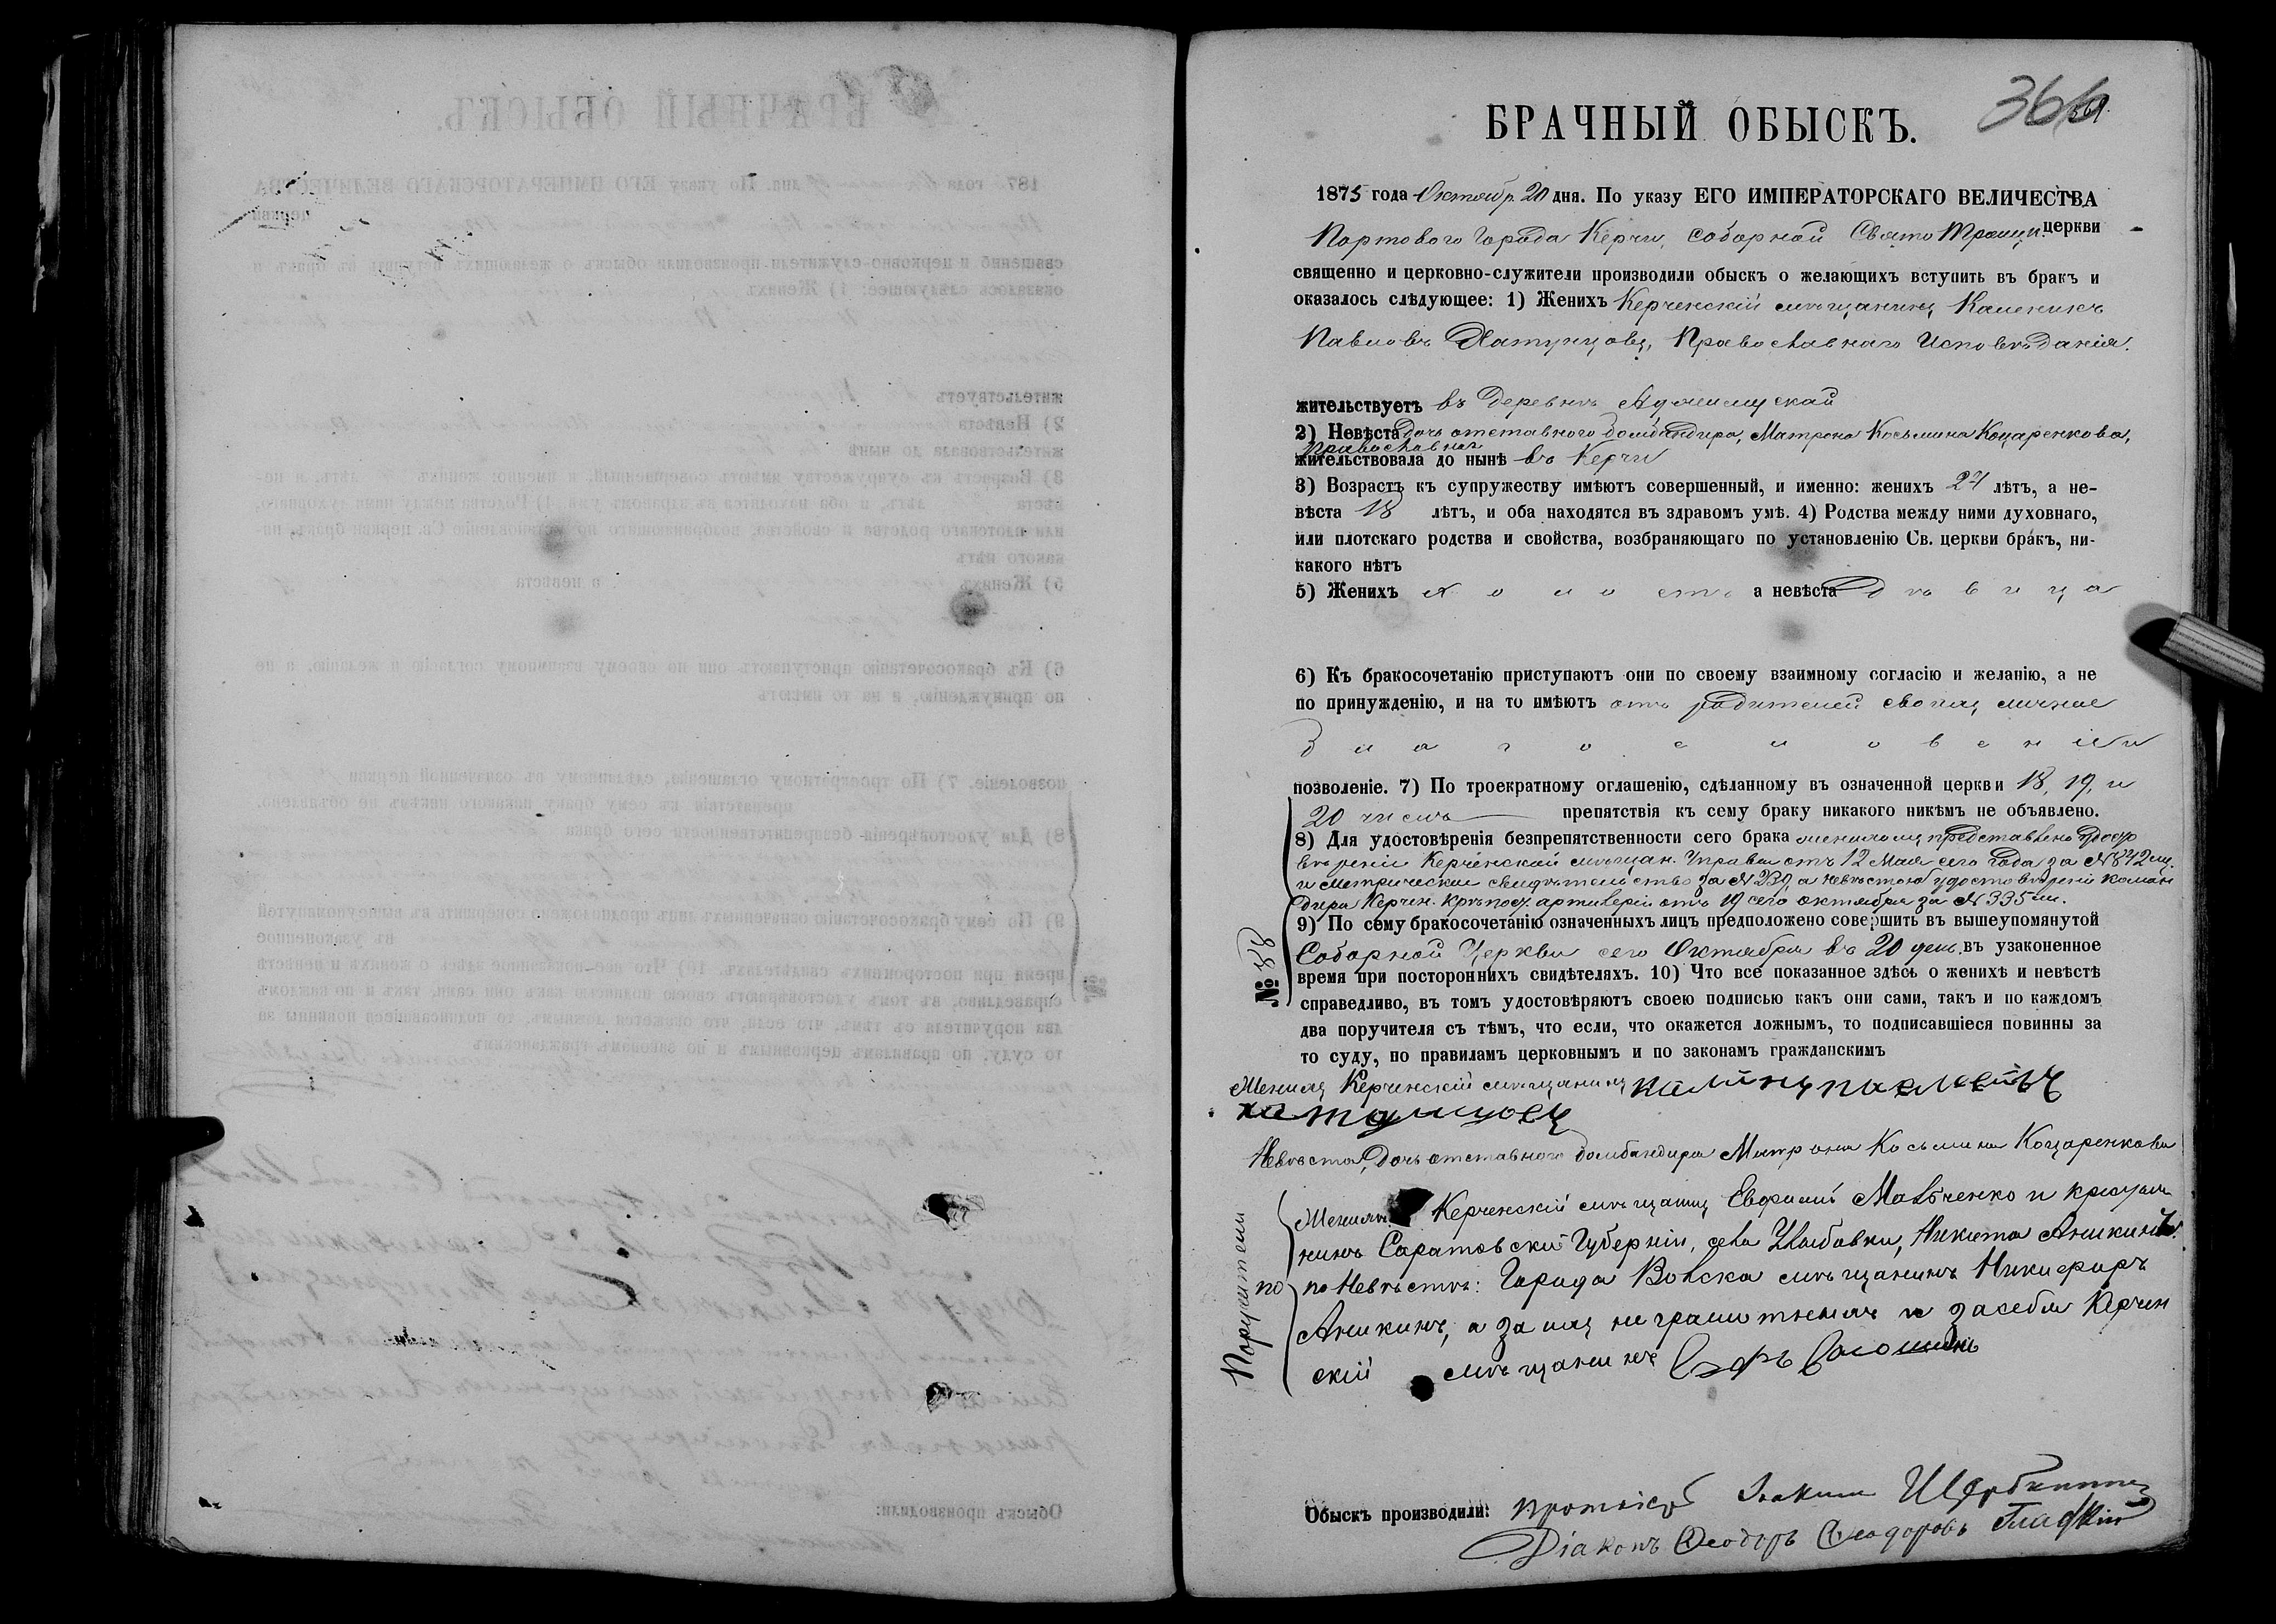 БРАЧНЫЙ ОБЫСКЪ.
366
1875 года Октябр. 20 дня. По указу ЕГО ИМПЕРАТОРСКАГО ВЕЛИЧЕСТВА
Портоваго Города Керчи, Соборной Свято Троицк. церкви
священно и церковно-служители производили обыскъ о желающихъ вступить въ бракъ и
оказалось слѣдующее: 1) Женихъ Керченскій мѣщанинъ
Павловъ Хатунцовъ, Православнаго Исповѣданія.
жительствуетъ въ деревнѣ Аджимушкай
2) Невѣста дочь отставного бомбандира, Матрона Косьмина Коцаренкова,
православная
жительствовала до нынѣ въ Керчи
3) Возрастъ къ супружеству имѣютъ совершенный, и именно: женихъ лѣтъ, а не-
вѣста 18 лѣтъ, и оба находятся въ здравомъ умѣ. 4) Родства между ними духовнаго,
или плотскаго родства и свойства, возбраняющаго по установленію Св. церкви бракъ, ни-
какого нѣтъ
5) Женихъ холостъ а невѣста дѣвица
6) Къ бракосочетанію приступаютъ они по своему взаимному согласію и желанію, а не
по принужденію, и на то имѣютъ отъ родителей своихъ личное
благословеніе и
позволеніе. 7) По троекратному оглашенію, сдѣланному въ означенной церкви 18, 19, и
20 числъ препятствія къ сему браку никакого никѣмъ не объявлено.
8) Для удостовѣренія безпрепятственности сего брака женихомъ представлено удосто
вѣреніе Керченской мѣщан. Управы отъ 12 Мая сего года за № 842мъ.
и метрическое свидѣтельство за № 239, а невѣстою удостовѣреніе коман
дира Керчен. крѣпост. артилеріи отъ 19 сего октября за № 335мъ.
9) По сему бракосочетанію означенныхъ лицъ предположено совершить въ вышеупомянутой
Соборной Церкви сего Октября въ 20 день въ узаконенное
время при постороннихъ свидѣтеляхъ. 10) Что все показанное здѣсь о женихѣ и невѣстѣ
справедливо, въ томъ удостовѣряютъ своею подписью какъ они сами, такъ и по каждомъ
два поручителя съ тѣмъ, что если, что окажется ложнымъ, то подписавшіеся повинны за
то суду, по правиламъ церковнымъ и по законамъ гражданскимъ
№ 58
Женихъ Керченскій мѣщанинъ
хатунцовъ
Невѣста, дочь отставного бомбандира Матрона Косьмина Коцаренкова
Поручители
по
Женихѣ Керченскій мѣщанинъ Евфимій Матвченко и крестья
нинъ Саратовской Губерніи, села Никита Аникинъ.
по Невѣстѣ: Города Вольска мѣщанинъ Никифоръ
Аникинъ, а за нихъ неграмотныхъ и за себя Керчен
скій мѣщанинъ
Обыскъ производили: Іоакимъ
Діаконъ Ѳеодоръ Ѳеодоровъ Гладкій